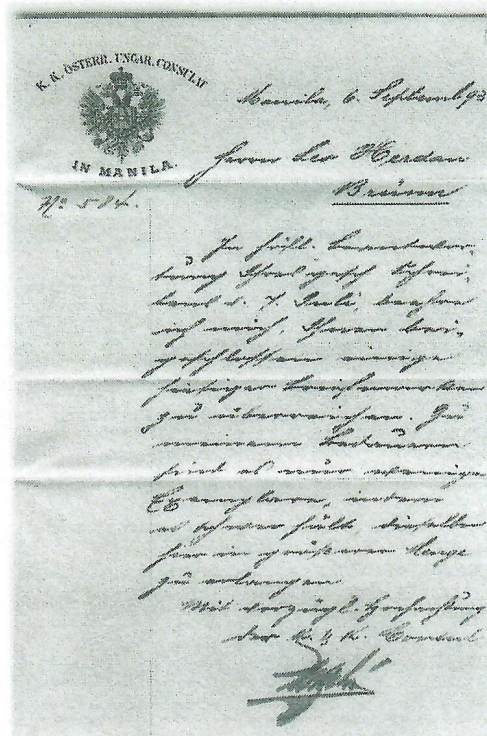 K. K. ÖSTERR. UNGAR. CONSULAT
IN MANILA.
Manila, 6. Septemb 93
Herrn Leo Herdan
Brünn
No 584.
In höfl. Beantwor-
tung Ihres gesch Schrei-
bens v. 7. Juli, beehre
ich mich, Ihnen bei-
geschlossen einige
hiesiger Briefmarken
zu überreichen. Zu
meinem Bedauern
sind es nur wenige
Exemplare, indem
es schwer hält, dieselben
hier in größerer Menge
zu erlangen
Mit vorzügl. Hochachtung
der K. & K. Consul